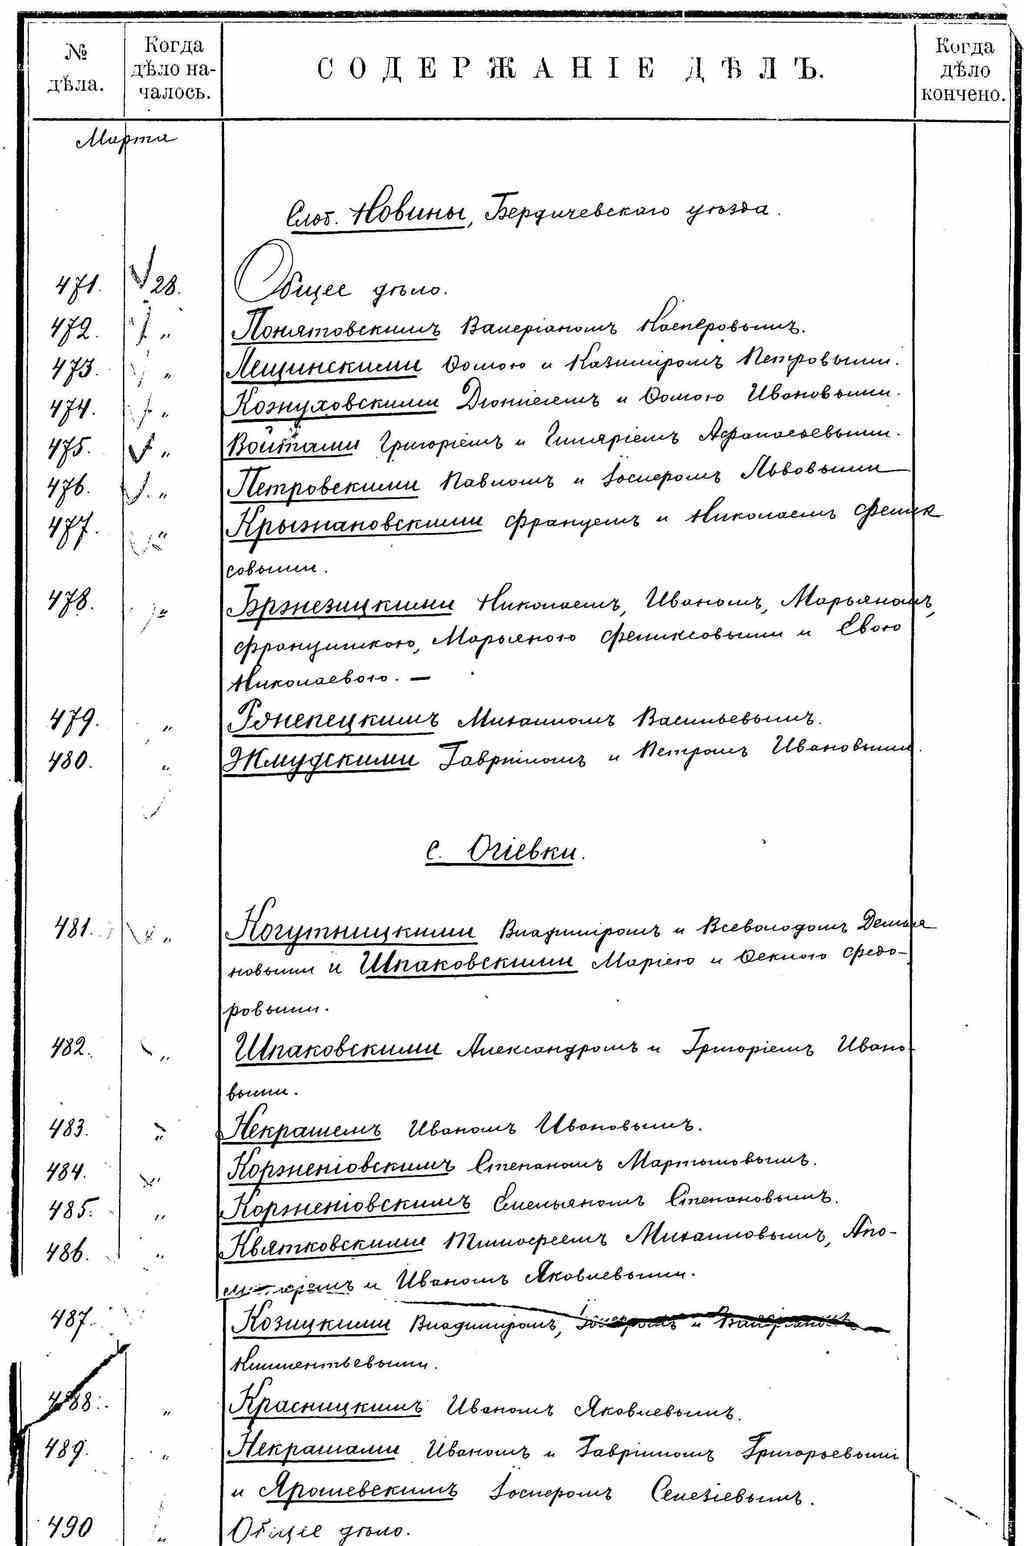 № дѣла. Когда дѣло началось. СОДЕРЖАНІЕ ДѢЛЪ. Когда дѣло кончено.
Марта
Слоб. Новины, Бердичевскаго уѣзда.
471. 28. Общее дѣло.
472. „ Понятовскимъ Валеріаномъ Касперовымъ.
473. „ Лещинскими Ѳомою и Казиміромъ Петровыми.
474. „ Кожуховскими Діонисіемъ и Ѳомою Ивановыми.
475. „ Войтами Григоріемъ и Гиляріемъ Афанасьевыми.
476. „ Петровскими Павломъ и Іосифомъ Львовыми
477. „ Крыжановскими Францемъ и Николаемъ Феник
совыми.
478. „ Бржезицкими Николаемъ, Иваномъ, Марьяномъ,
Францишкою, Марьяною Фениксовыми и Евою
Николаевою. —
479. „ Ржепецкимъ Михаиломъ Васильевымъ.
480. „ Жмудскими Гавріиломъ и Петромъ Ивановыми.
с. Огіевки.
481. „ Когутницкими Владиміромъ и Всеволодомъ Демья
новыми и Шпаковскими Маріею и Ѳеклою Федо-
ровыми.
482. „ Шпаковскими Александромъ и Григоріемъ Ивано-
выми.
483. „ Некрашемъ Иваномъ Ивановымъ.
484. „ Корженіовскимъ Степаномъ Мартыновымъ.
485. „ Корженіовскимъ Емельяномъ Степановымъ.
486. „ Квятковскими Тимофеемъ Михаиловымъ, Апо-
и Иваномъ Яковлевыми.
487. Козицкими Владиміромъ, Іосифомъ и Валеріаномъ
Климентьевыми.
488. „ Красницкимъ Иваномъ Яковлевымъ.
489. „ Некрашами Иваномъ и Гавріиломъ Григорьевыми
и Ярошевскимъ Іосифомъ Селезіевымъ.
490 „ Общее дѣло.